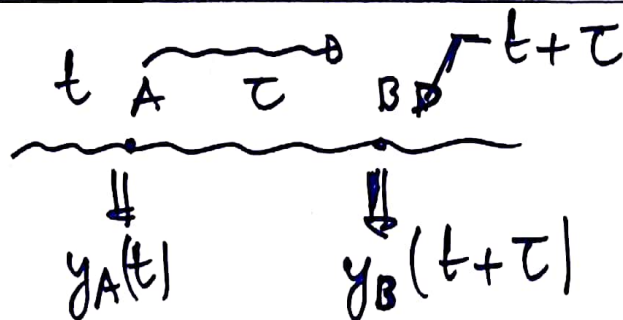 t A τ B t + τ
y_A(t) y_B(t + τ)